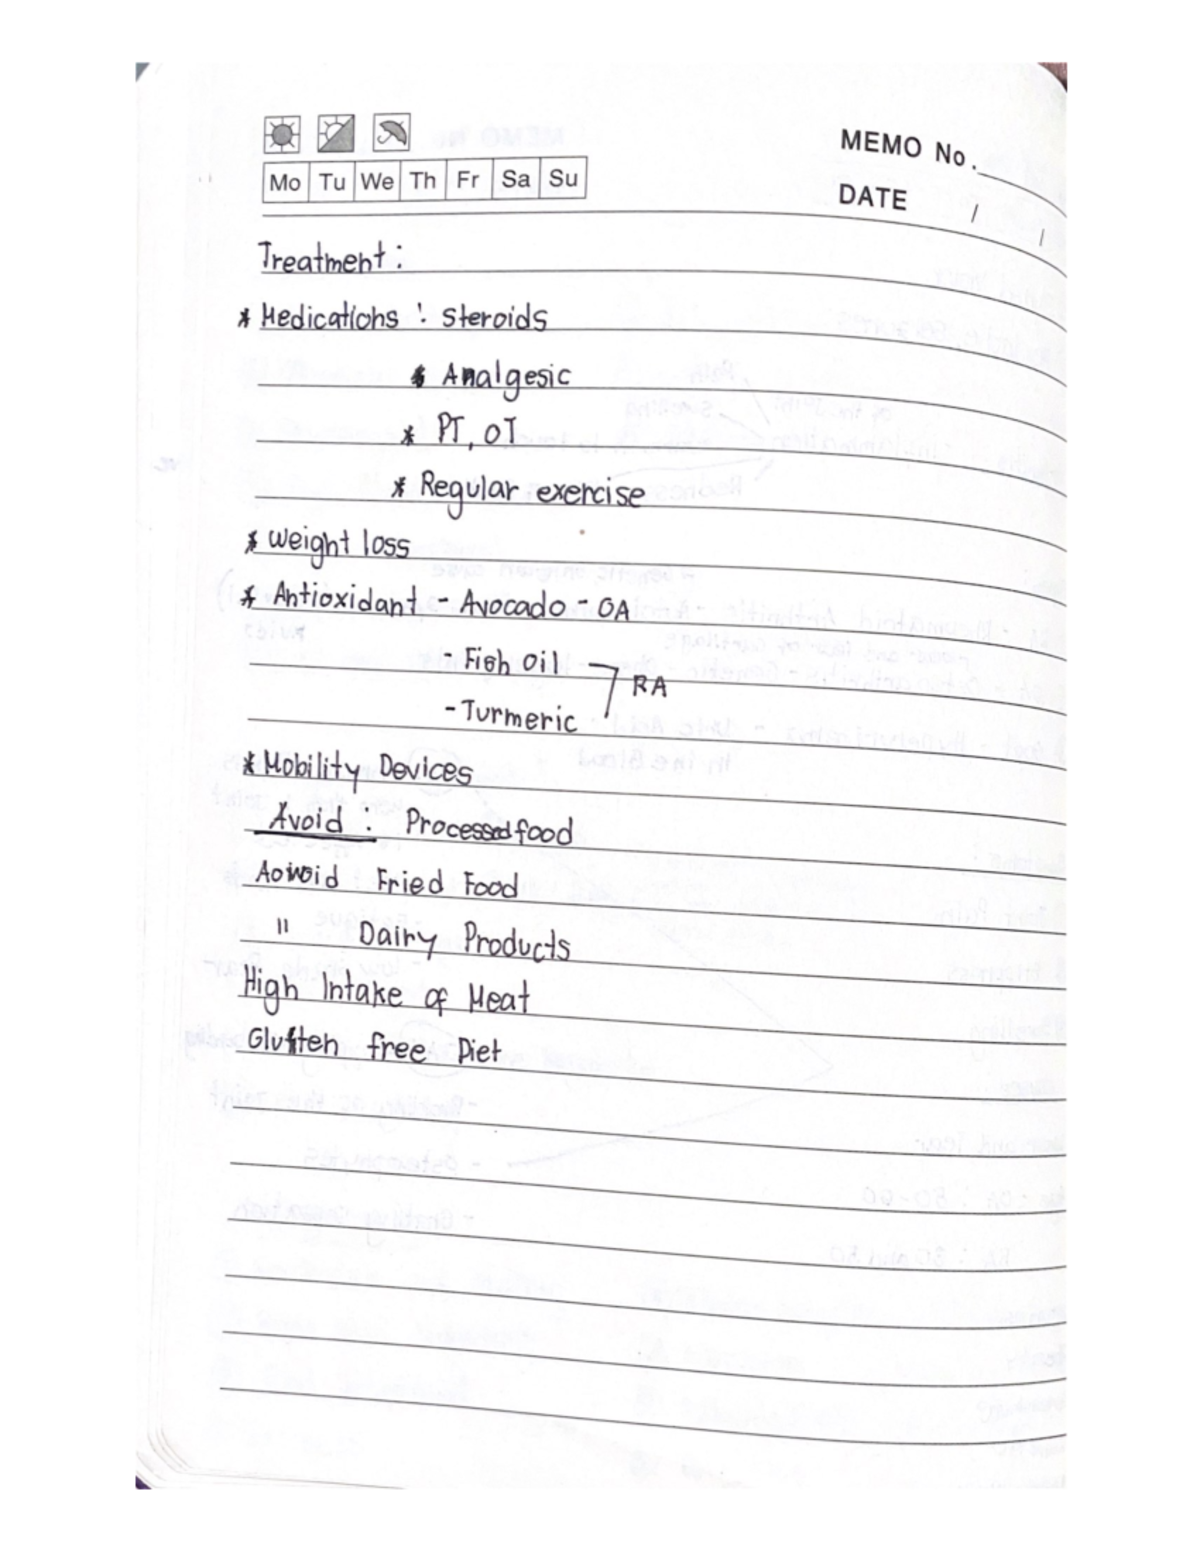 MEMO No.
Mo Tu We Th Fr Sa Su
DATE / /
Treatment :
* Medications : Steroids
* Analgesic
* PT, OT
* Regular exercise
* Weight loss
* Antioxidant - Avocado - OA
- Fish oil
RA
- Turmeric
* Mobility Devices
Avoid : Processed food
Aovoid Fried Food
" Dairy Products
High Intake of Meat
Glutten free Diet